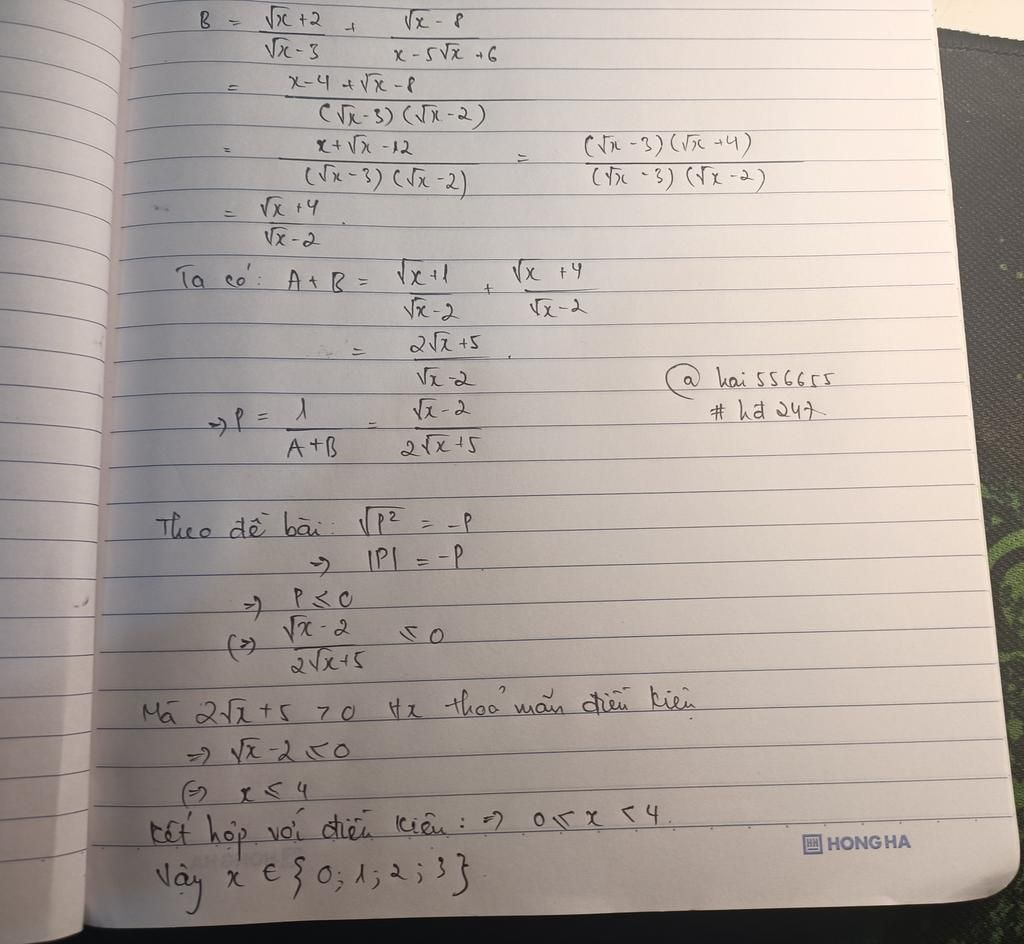 B = \frac{\sqrt{x}+2}{\sqrt{x}-3} + \frac{\sqrt{x}-8}{x-5\sqrt{x}+6}
= \frac{x-4+\sqrt{x}-8}{(\sqrt{x}-3)(\sqrt{x}-2)}
= \frac{x+\sqrt{x}-12}{(\sqrt{x}-3)(\sqrt{x}-2)} = \frac{(\sqrt{x}-3)(\sqrt{x}+4)}{(\sqrt{x}-3)(\sqrt{x}-2)}
= \frac{\sqrt{x}+4}{\sqrt{x}-2}.
Ta có: A+B = \frac{\sqrt{x}+1}{\sqrt{x}-2} + \frac{\sqrt{x}+4}{\sqrt{x}-2}
= \frac{2\sqrt{x}+5}{\sqrt{x}-2}.
@ hai556655
# hđ247
=> P = \frac{1}{A+B} = \frac{\sqrt{x}-2}{2\sqrt{x}+5}
Theo đề bài: \sqrt{P^2} = -P
=> |P| = -P
=> P ≤ 0
(=>) \frac{\sqrt{x}-2}{2\sqrt{x}+5} ≤ 0
Mà 2\sqrt{x}+5 > 0 ∀x thoả mãn điều kiện
=> \sqrt{x}-2 ≤ 0
(=> x ≤ 4
Kết hợp với điều kiện: => 0 ≤ x < 4.
Vậy x ∈ {0; 1; 2; 3}
HONG HA